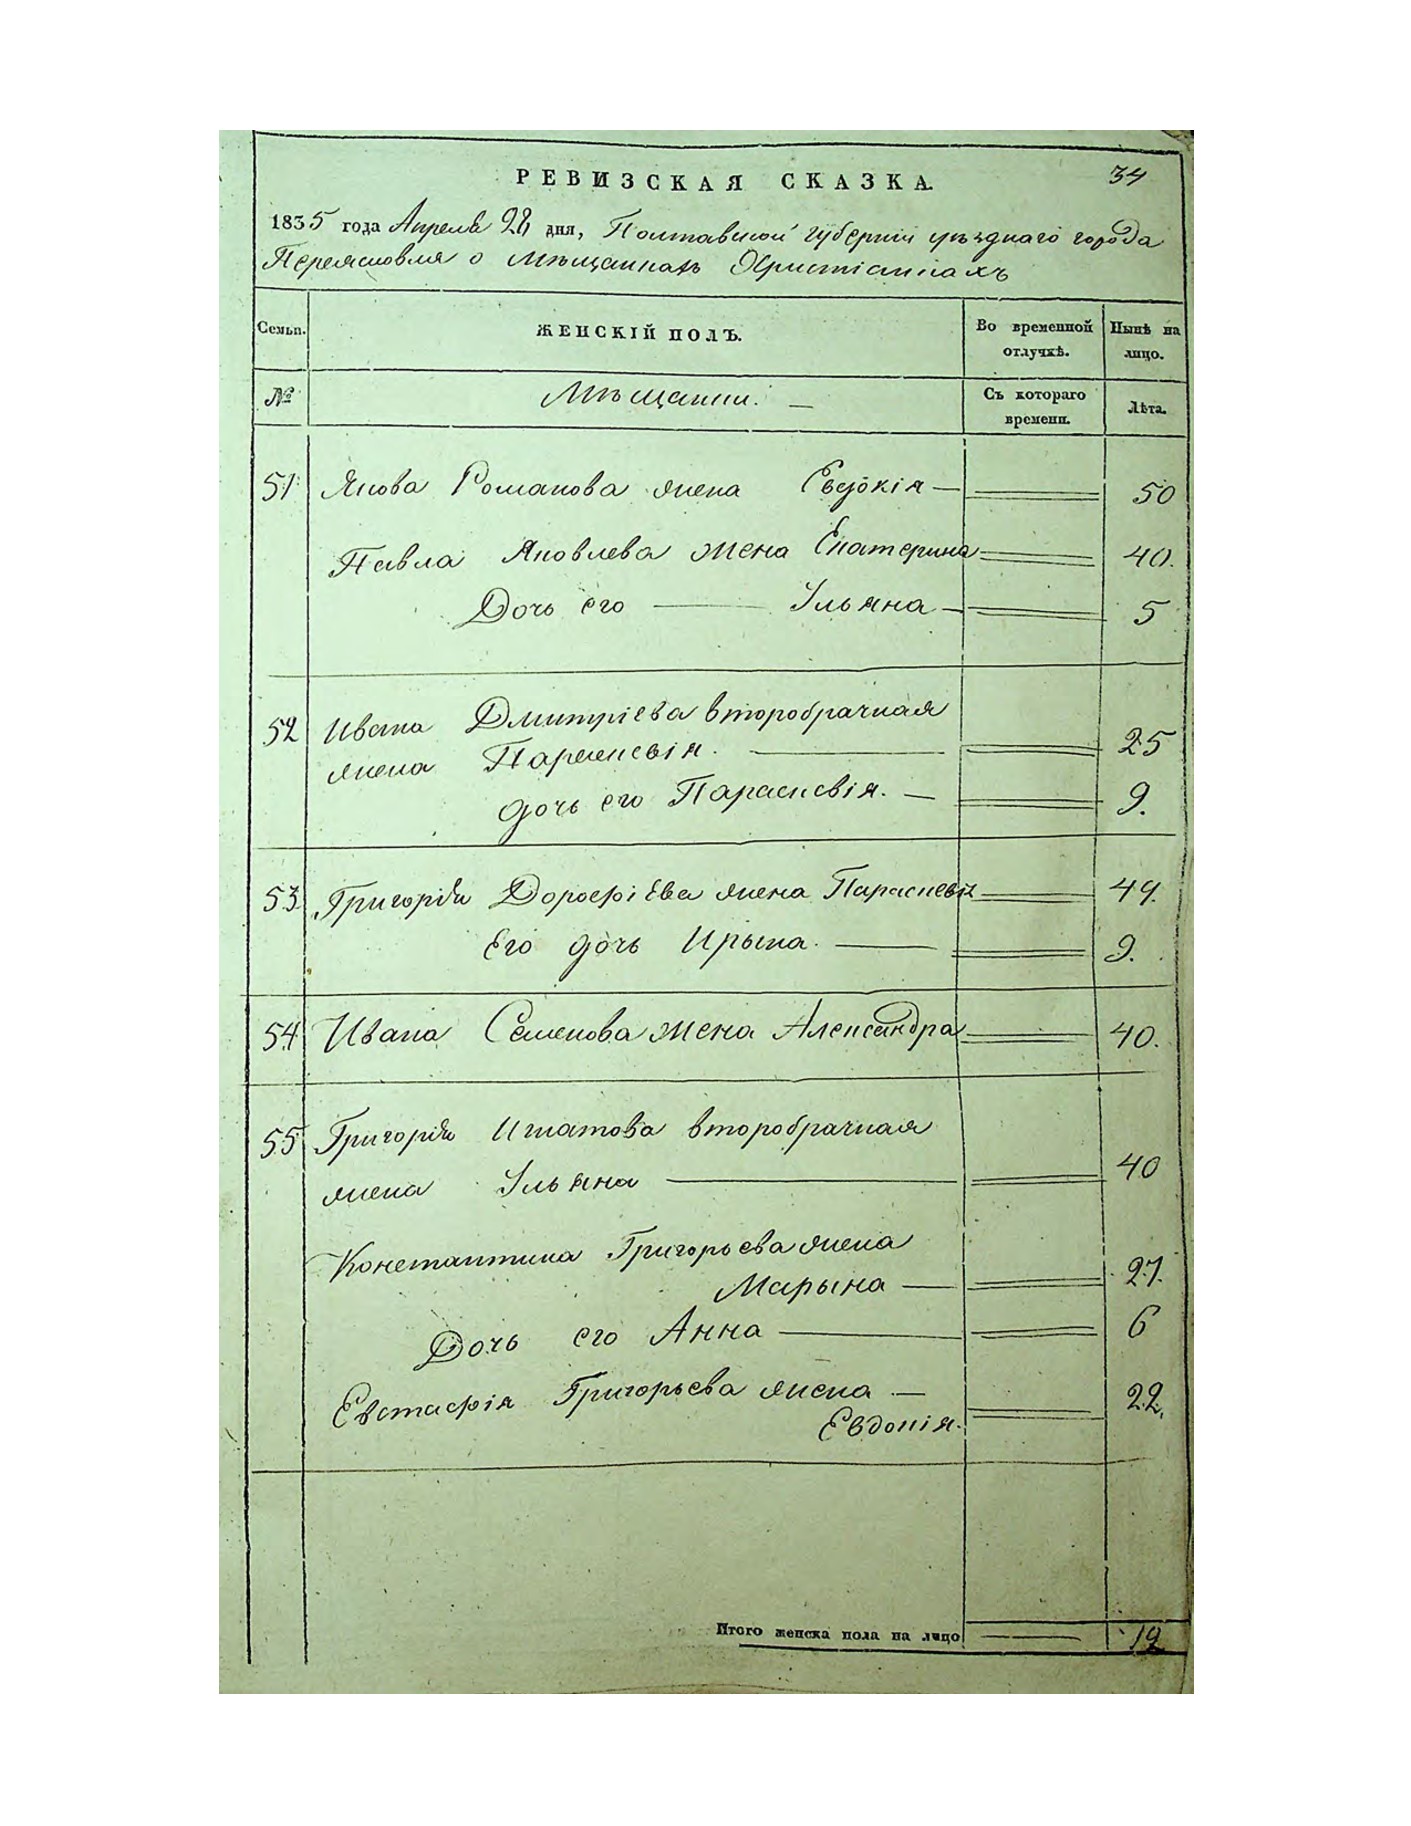 34
РЕВИЗСКАЯ СКАЗКА.
1835 года Апреля 28 дня, Полтавской губернии уѣзднаго города
Переяславля о мѣщанахъ Христіанахъ
Семьи.
ЖЕНСКІЙ ПОЛЪ.
Во временной отлучкѣ.
Нынѣ на лицо.
№
Мѣщанки. —
Съ котораго времени.
Лѣта.
51 Якова Романова жена Евдокія — 50
Павла Яковлева жена Екатерина 40.
Дочь его — Ульяна — 5
52 Ивана Дмитріева второбрачная
жена Параскевія. — 25
дочь его Параскевія. — 9.
53. Григорія Дорофіева жена Параскевія 49.
Его дочь Ирына. — 9.
54 Ивана Семенова жена Александра 40.
55 Григорія Игнатова второбрачная
жена Ульяна — 40
Константина Григорьева жена
Марына — 27.
Дочь его Анна — 6
Евстафія Григорьева жена —
Евдокія. 22.
Итого женска пола на лицо 12